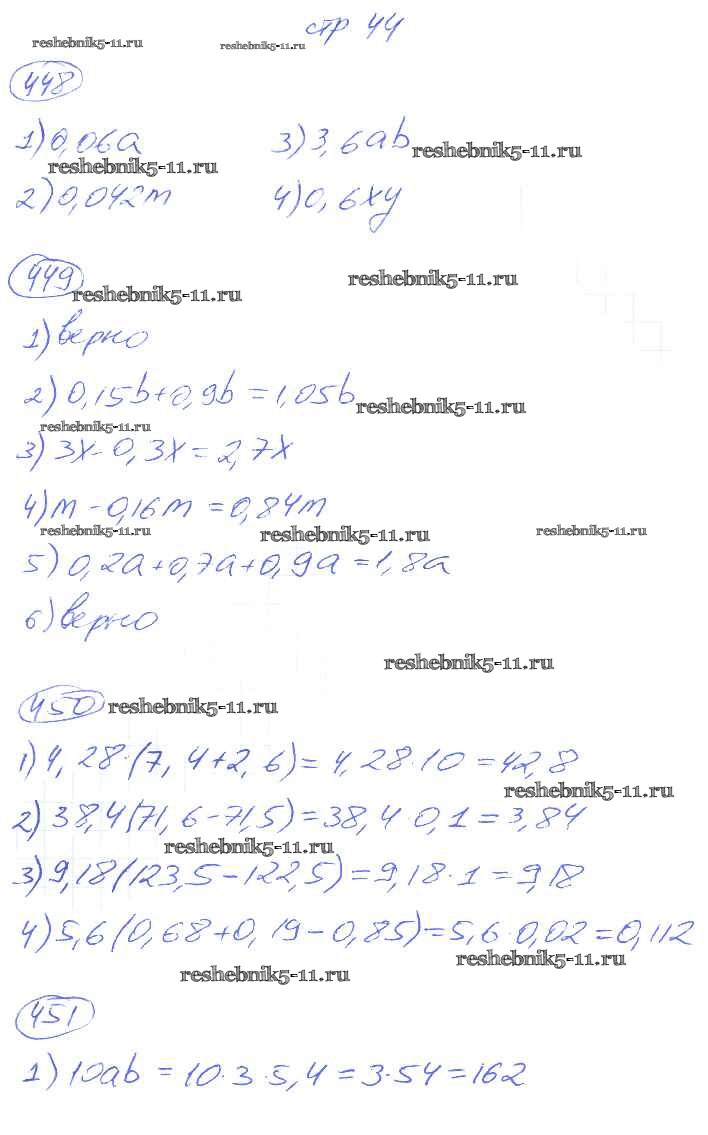 стр 44
reshebnik5-11.ru reshebnik5-11.ru
448
1) 0,06a 3) 3,6ab reshebnik5-11.ru
reshebnik5-11.ru
2) 0,042m 4) 0,6xy
449 reshebnik5-11.ru
reshebnik5-11.ru
1) верно
2) 0,15b+0,9b=1,05b reshebnik5-11.ru
reshebnik5-11.ru
3) 3x-0,3x=2,7x
4) m-0,16m=0,84m
reshebnik5-11.ru reshebnik5-11.ru reshebnik5-11.ru
5) 0,2a+0,7a+0,9a=1,8a
6) верно
reshebnik5-11.ru
450 reshebnik5-11.ru
1) 4,28·(7,4+2,6)=4,28·10=42,8
reshebnik5-11.ru
2) 38,4(71,6-71,5)=38,4·0,1=3,84
reshebnik5-11.ru
3) 9,18(123,5-122,5)=9,18·1=9,18
4) 5,6(0,68+0,19-0,85)=5,6·0,02=0,112
reshebnik5-11.ru
reshebnik5-11.ru
451
1) 10ab=10·3·5,4=3·54=162